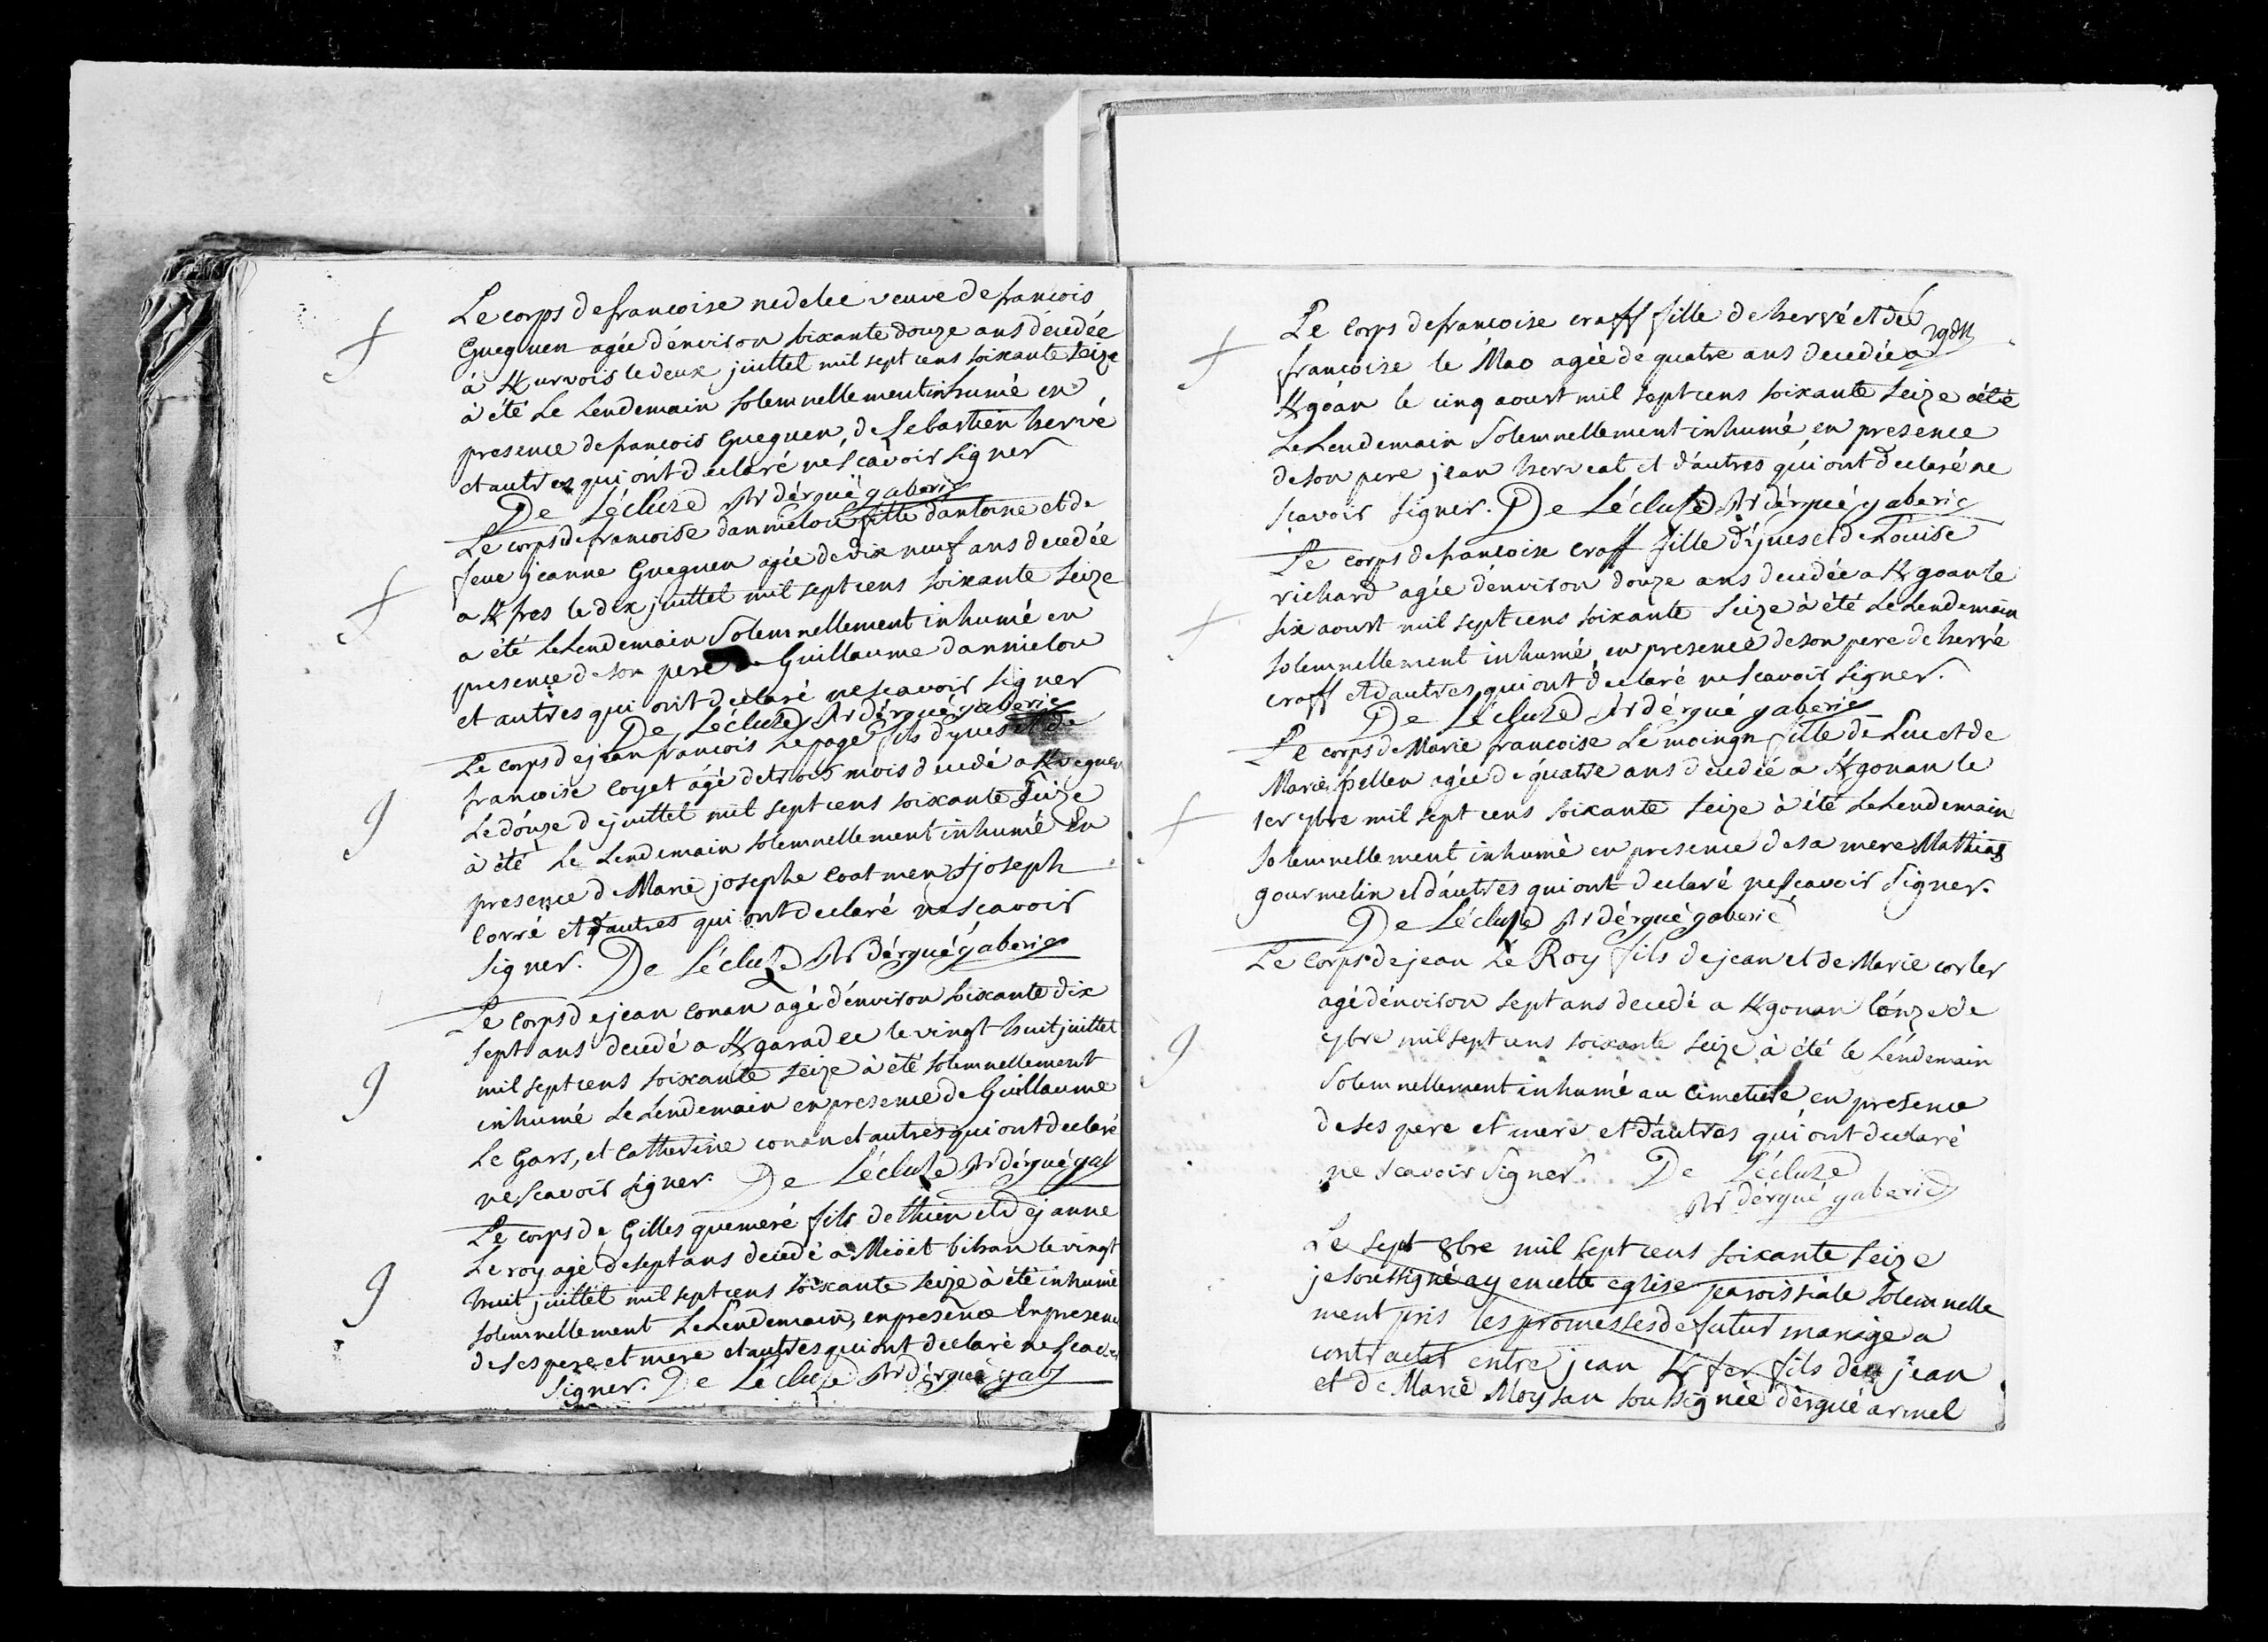 Le corps de francoise nedelec veuve de francois
Gueguen agée d'environ soixante douze ans décedée
à Kurvois le deux juillet mil sept cens soixante seize
à été Le Lendemain solemnellement inhumé en
presence de francois Gueguen, de Sebastien hervé
et autres qui ont déclaré ne scavoir signer
De Lécluze Rr dérgué gaberic
Le corps de francoise danniélou fille d'antoine et de
feue jeanne Gueguen agée de dix neuf ans decedée
a Kfres le dix juillet mil sept cens soixante seize
a été Le Lendemain Solemnellement inhumé en
presence de son pere Guillaume dannielou
et autres qui ont déclaré ne scavoir signer
De Lécluze Rr dérgué gaberic
Le corps de jean francois Le page fils d'yves et de
francoise coyet âgé de trois mois decedé a Kveguen
Le douze de juillet mil sept cens soixante seize
à été Le Lendemain solemnellement inhumé En
presence de Marie josephe coatmen & joseph
corré et d'autres qui ont declaré ne scavoir
signer. De Lécluze Rr dérgué gaberic
Le corps de jean conan agé d'environ soixante dix
sept ans decedé a Kgaradec le vingt huit juillet
mil sept cens soixante seize à été solemnellement
inhumé Le Lendemain en presence de Guillaume
Le Gars, et Catherine conan et autres qui ont declaré
ne scavoir signer. De Lécluze Rr dérgué gab
Le corps de Gilles quemeré fils de thien et de janne
Le roy agé de sept ans decedé a Meöet bihan le vingt
huit juillet mil sept cens soixante seize à été inhumé
solemnellement Le Lendemain, en presence En presence
de ses pere et mere et autres qui ont declaré ne scavoir
signer. De Lécluze Rr dérgué gab
Le corps de francoise craff fille de hervé et de
francoise le Mao agée de quatre ans decedée a
Kgoan le cinq aoust mil sept cens soixante seize a été
Le Lendemain Solemnellement inhumé en presence
de son pere jean herveat et d'autres qui ont declaré ne
scavoir signer. De Lécluze Rr dérgué gaberic
Le corps de francoise craff fille d'yves et de Louise
richard agée d'environ douze ans decedée a Kgoan le
six aoust mil sept cens soixante seize à été Le Lendemain
solemnellement inhumé en presence de son pere de hervé
craff et d'autres qui ont declaré ne scavoir signer.
De Lécluze Rr dérgué gaberic
Le corps de Marie francoise Le moingn fille de Luc et de
Marie pellen agée de quatre ans decedée a Kgonan le
1er 7bre mil sept cens soixante seize à été Le Lendemain
solemnellement inhumé en presence de sa mere Mathias
gourmelin et d'autres qui ont declaré ne scavoir signer.
De Lécluze Rr dérgué gaberic
Le corps de jean Le Roy fils de jean et de Marie corler
agé d'environ sept ans decedé a Kgonan l'onze de
7bre mil sept cens soixante seize à été le Lendemain
Solemnellement inhumé au cimetiere en presence
de ses pere et mere et d'autres qui ont declaré
ne scavoir signer. De Lécluze
Rr dérgué gaberic
Le sept 8bre mil sept cens soixante seize
je soussigné ay en cette eglise paroissiale solemnelle
ment pris les promesses de futur mariage a
contracter entre jean Kfer fils de jean
et de Marie Moysan soussignée dérgué armel